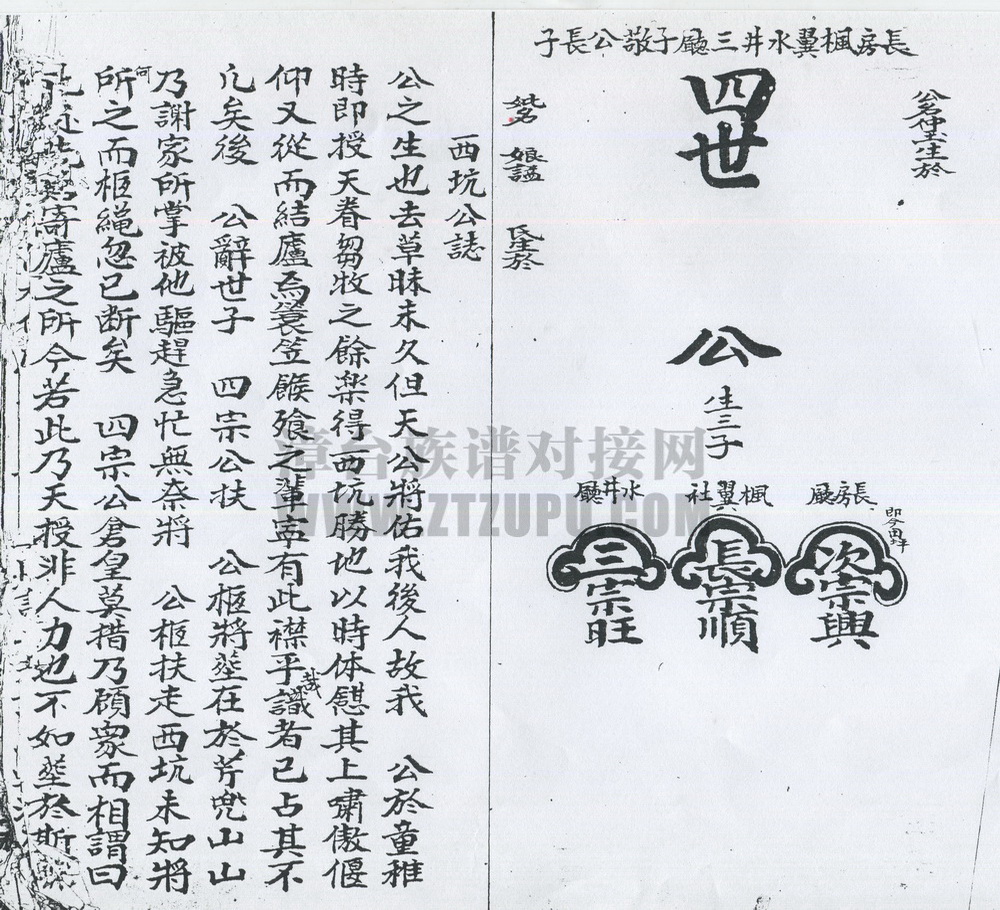 長房楓翼水井三廳子敬公長子
公名仲
生於
四世
公
生三子
妣名
娘謚
氏生於
長房廳
即今
次宗興
楓翼社
長宗順
水井廳
三宗旺
西坑公誌
公之生也去草昧未久但天公將佑我後人故我 公於童稚
時即授天眷芻牧之餘楽得西坑勝地以時体慰其上嘯傲偃
仰又從而結廬焉簑笠餱飱之輩寧有此襟乎哉識者已占其不
凢矣後 公辭世子 四宗公扶 公柩將塟在於芹兜山山
乃謝家所掌被他驅趕急忙無奈將 公柩扶走西坑未知將
何所之而柩繩忽已断矣 四宗公倉皇莫措乃顧衆而相謂曰
寄廬之所今若此乃天授非人力也不如塟於斯